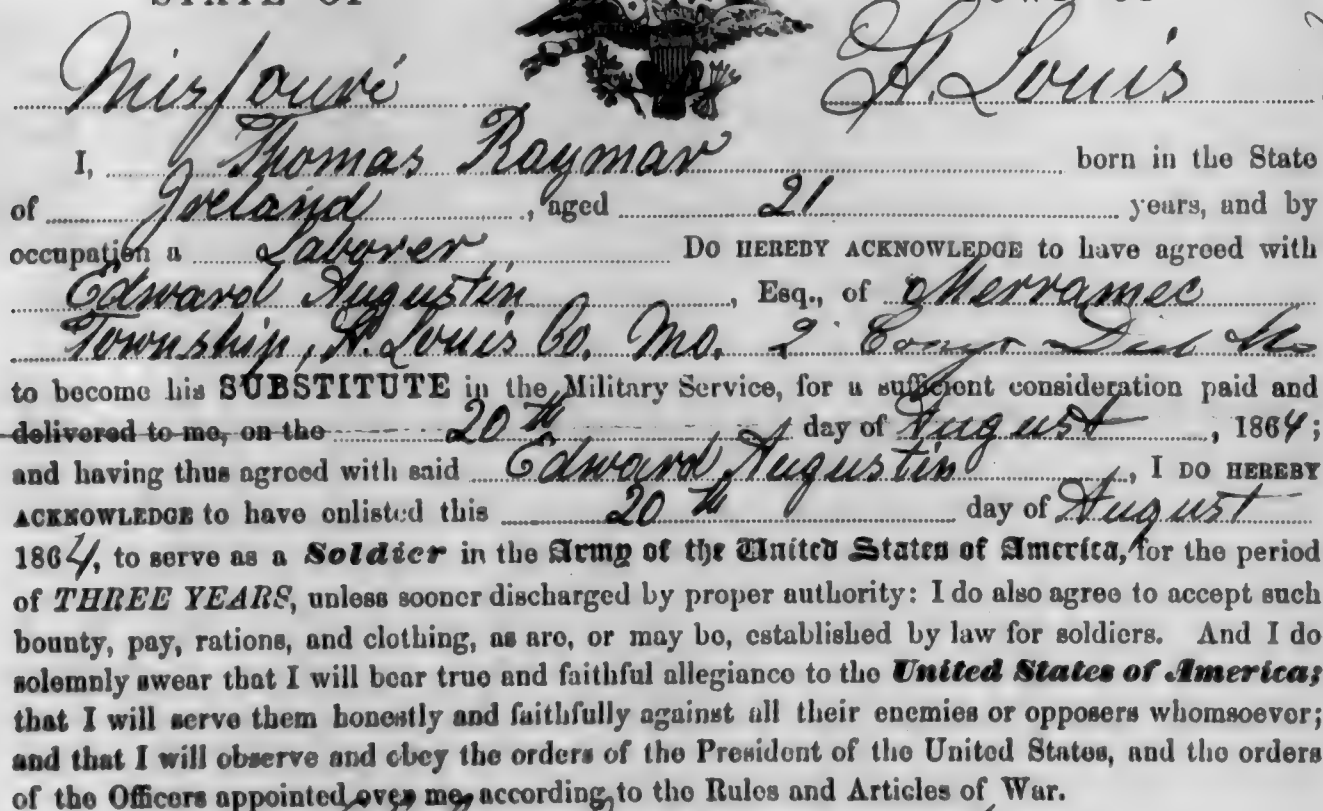 STATE OF
Missouri St. Louis
I, Thomas Raymar born in the State
of Ireland, aged 21 years, and by
occupation a Laborer Do HEREBY ACKNOWLEDGE to have agreed with
Edward Augustin, Esq., of Merramec
Township, St. Louis Co. Mo. 2 Congr Dist Mo
to become his SUBSTITUTE in the Military Service, for a sufficient consideration paid and
delivered to me, on the 20th day of August, 1864;
and having thus agreed with said Edward Augustin, I DO HEREBY
ACKNOWLEDGE to have enlisted this 20th day of August
1864, to serve as a Soldier in the Army of the United States of America, for the period
of THREE YEARS, unless sooner discharged by proper authority: I do also agree to accept such
bounty, pay, rations, and clothing, as are, or may be, established by law for soldiers. And I do
solemnly swear that I will bear true and faithful allegiance to the United States of America;
that I will serve them honestly and faithfully against all their enemies or opposers whomsoever;
and that I will observe and obey the orders of the President of the United States, and the orders
of the Officers appointed over me, according to the Rules and Articles of War.